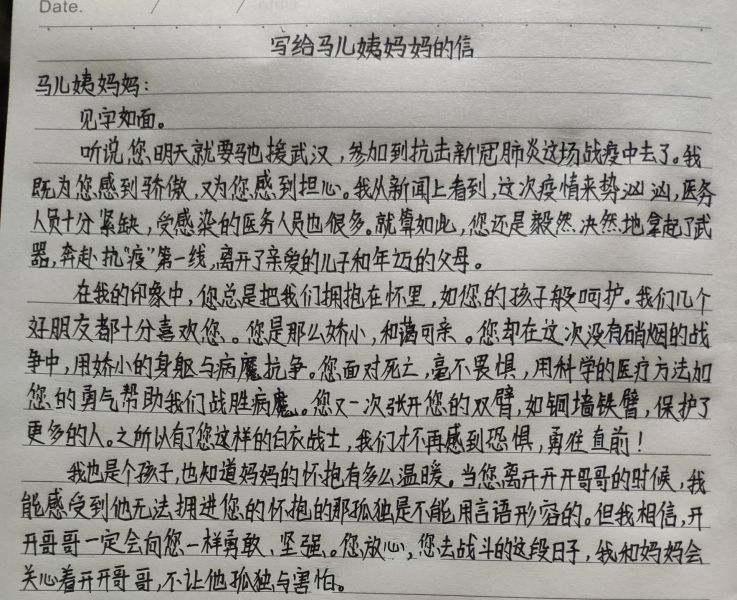 Date. / /
写给马儿姨妈妈的信
马儿姨妈妈：
见字如面。
听说,您明天就要驰援武汉，参加到抗击新冠肺炎这场战疫中去了。我
既为您感到骄傲，又为您感到担心。我从新闻上看到，这次疫情来势汹汹，医务
人员十分紧缺，受感染的医务人员也很多。就算如此，您还是毅然决然地拿起了武
器，奔赴抗“疫”第一线，离开了亲爱的儿子和年迈的父母。
在我的印象中，您总是把我们拥抱在怀里，如您的孩子般呵护。我们几个
好朋友都十分喜欢您。您是那么娇小，和蔼可亲。您却在这次没有硝烟的战
争中，用娇小的身躯与病魔抗争。您面对死亡，毫不畏惧，用科学的医疗方法加
您的勇气帮助我们战胜病魔。您又一次张开您的双臂，如铜墙铁臂，保护了
更多的人。之所以有了您这样的白衣战士，我们才不再感到恐惧，勇往直前！
我也是个孩子，也知道妈妈的怀抱有多么温暖。当您离开开开哥哥的时候，我
能感受到他无法拥进您的怀抱的那孤独是不能用言语形容的。但我相信，开
开哥哥一定会向您一样勇敢、坚强。您放心，您去战斗的这段日子，我和妈妈会
关心着开开哥哥，不让他孤独与害怕。